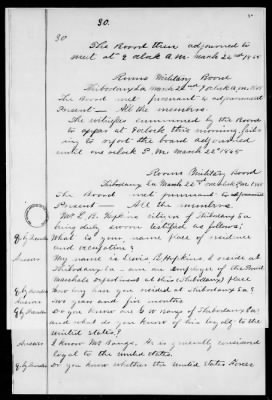 30.
30
The Board then adjourned to
meet at 9 o'clock A.M. March 22d 1865
Rooms Military Board
Thibodaux La March 22nd 9 o'clock A.M. 1865
The Board met pursuant to adjournment
Present — All the members.
The witnesses summoned by the Board
to appear at 9 o'clock this morning fail-
ing to report the board adjourned
until one o'clock P.M. March 22d 1865
Rooms Military Board
Thibodaux La March 22nd one o'clock P.M. 1865
The Board met pursuant to adjournment
Present — All the members
Mr L. B. Hopkins citizen of Thibodaux La
being duly sworn testified as follows;
Q by Recorder What is your name place of residence
and occupation?
Answer My name is Lewis B Hopkins I reside at
Thibodaux La — am an employee of the Provost
Marshals department at this (Thibodaux) place
Q by Recorder How long have you resided at Thibodaux La?
Answer Two years and five months
Q by Recorder Do you know one W Range of Thibodaux La
and what do you know of his loyalty to the
United States?
Answer I know Mr Range. He is generally considered
loyal to the United States.
Q by Recorder Do you know whether the United States Forces